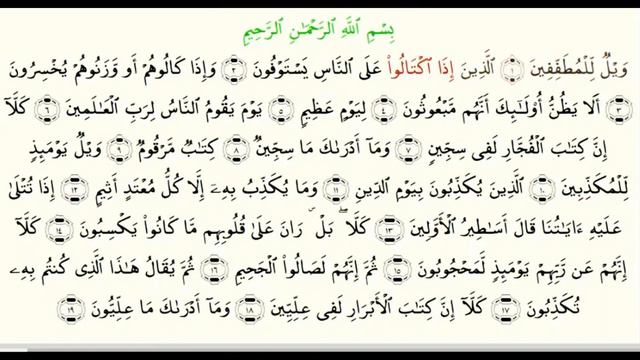 بِسْمِ ٱللَّهِ ٱلرَّحْمَٰنِ ٱلرَّحِيمِ
وَيْلٌ لِّلْمُطَفِّفِينَ ١ ٱلَّذِينَ إِذَا ٱكْتَالُوا۟ عَلَى ٱلنَّاسِ يَسْتَوْفُونَ ٢ وَإِذَا كَالُوهُمْ أَو وَّزَنُوهُمْ يُخْسِرُونَ
٣ أَلَا يَظُنُّ أُو۟لَٰٓئِكَ أَنَّهُم مَّبْعُوثُونَ ٤ لِيَوْمٍ عَظِيمٍ ٥ يَوْمَ يَقُومُ ٱلنَّاسُ لِرَبِّ ٱلْعَٰلَمِينَ ٦ كَلَّآ
إِنَّ كِتَٰبَ ٱلْفُجَّارِ لَفِى سِجِّينٍ ٧ وَمَآ أَدْرَىٰكَ مَا سِجِّينٌ ٨ كِتَٰبٌ مَّرْقُومٌ ٩ وَيْلٌ يَوْمَئِذٍ
لِّلْمُكَذِّبِينَ ١٠ ٱلَّذِينَ يُكَذِّبُونَ بِيَوْمِ ٱلدِّينِ ١١ وَمَا يُكَذِّبُ بِهِۦٓ إِلَّا كُلُّ مُعْتَدٍ أَثِيمٍ ١٢ إِذَا تُتْلَىٰ
عَلَيْهِ ءَايَٰتُنَا قَالَ أَسَٰطِيرُ ٱلْأَوَّلِينَ ١٣ كَلَّا ۖ بَلْ ۜ رَانَ عَلَىٰ قُلُوبِهِم مَّا كَانُوا۟ يَكْسِبُونَ ١٤ كَلَّآ
إِنَّهُمْ عَن رَّبِّهِمْ يَوْمَئِذٍ لَّمَحْجُوبُونَ ١٥ ثُمَّ إِنَّهُمْ لَصَالُوا۟ ٱلْجَحِيمِ ١٦ ثُمَّ يُقَالُ هَٰذَا ٱلَّذِى كُنتُم بِهِۦ
تُكَذِّبُونَ ١٧ كَلَّآ إِنَّ كِتَٰبَ ٱلْأَبْرَارِ لَفِى عِلِّيِّينَ ١٨ وَمَآ أَدْرَىٰكَ مَا عِلِّيُّونَ ١٩